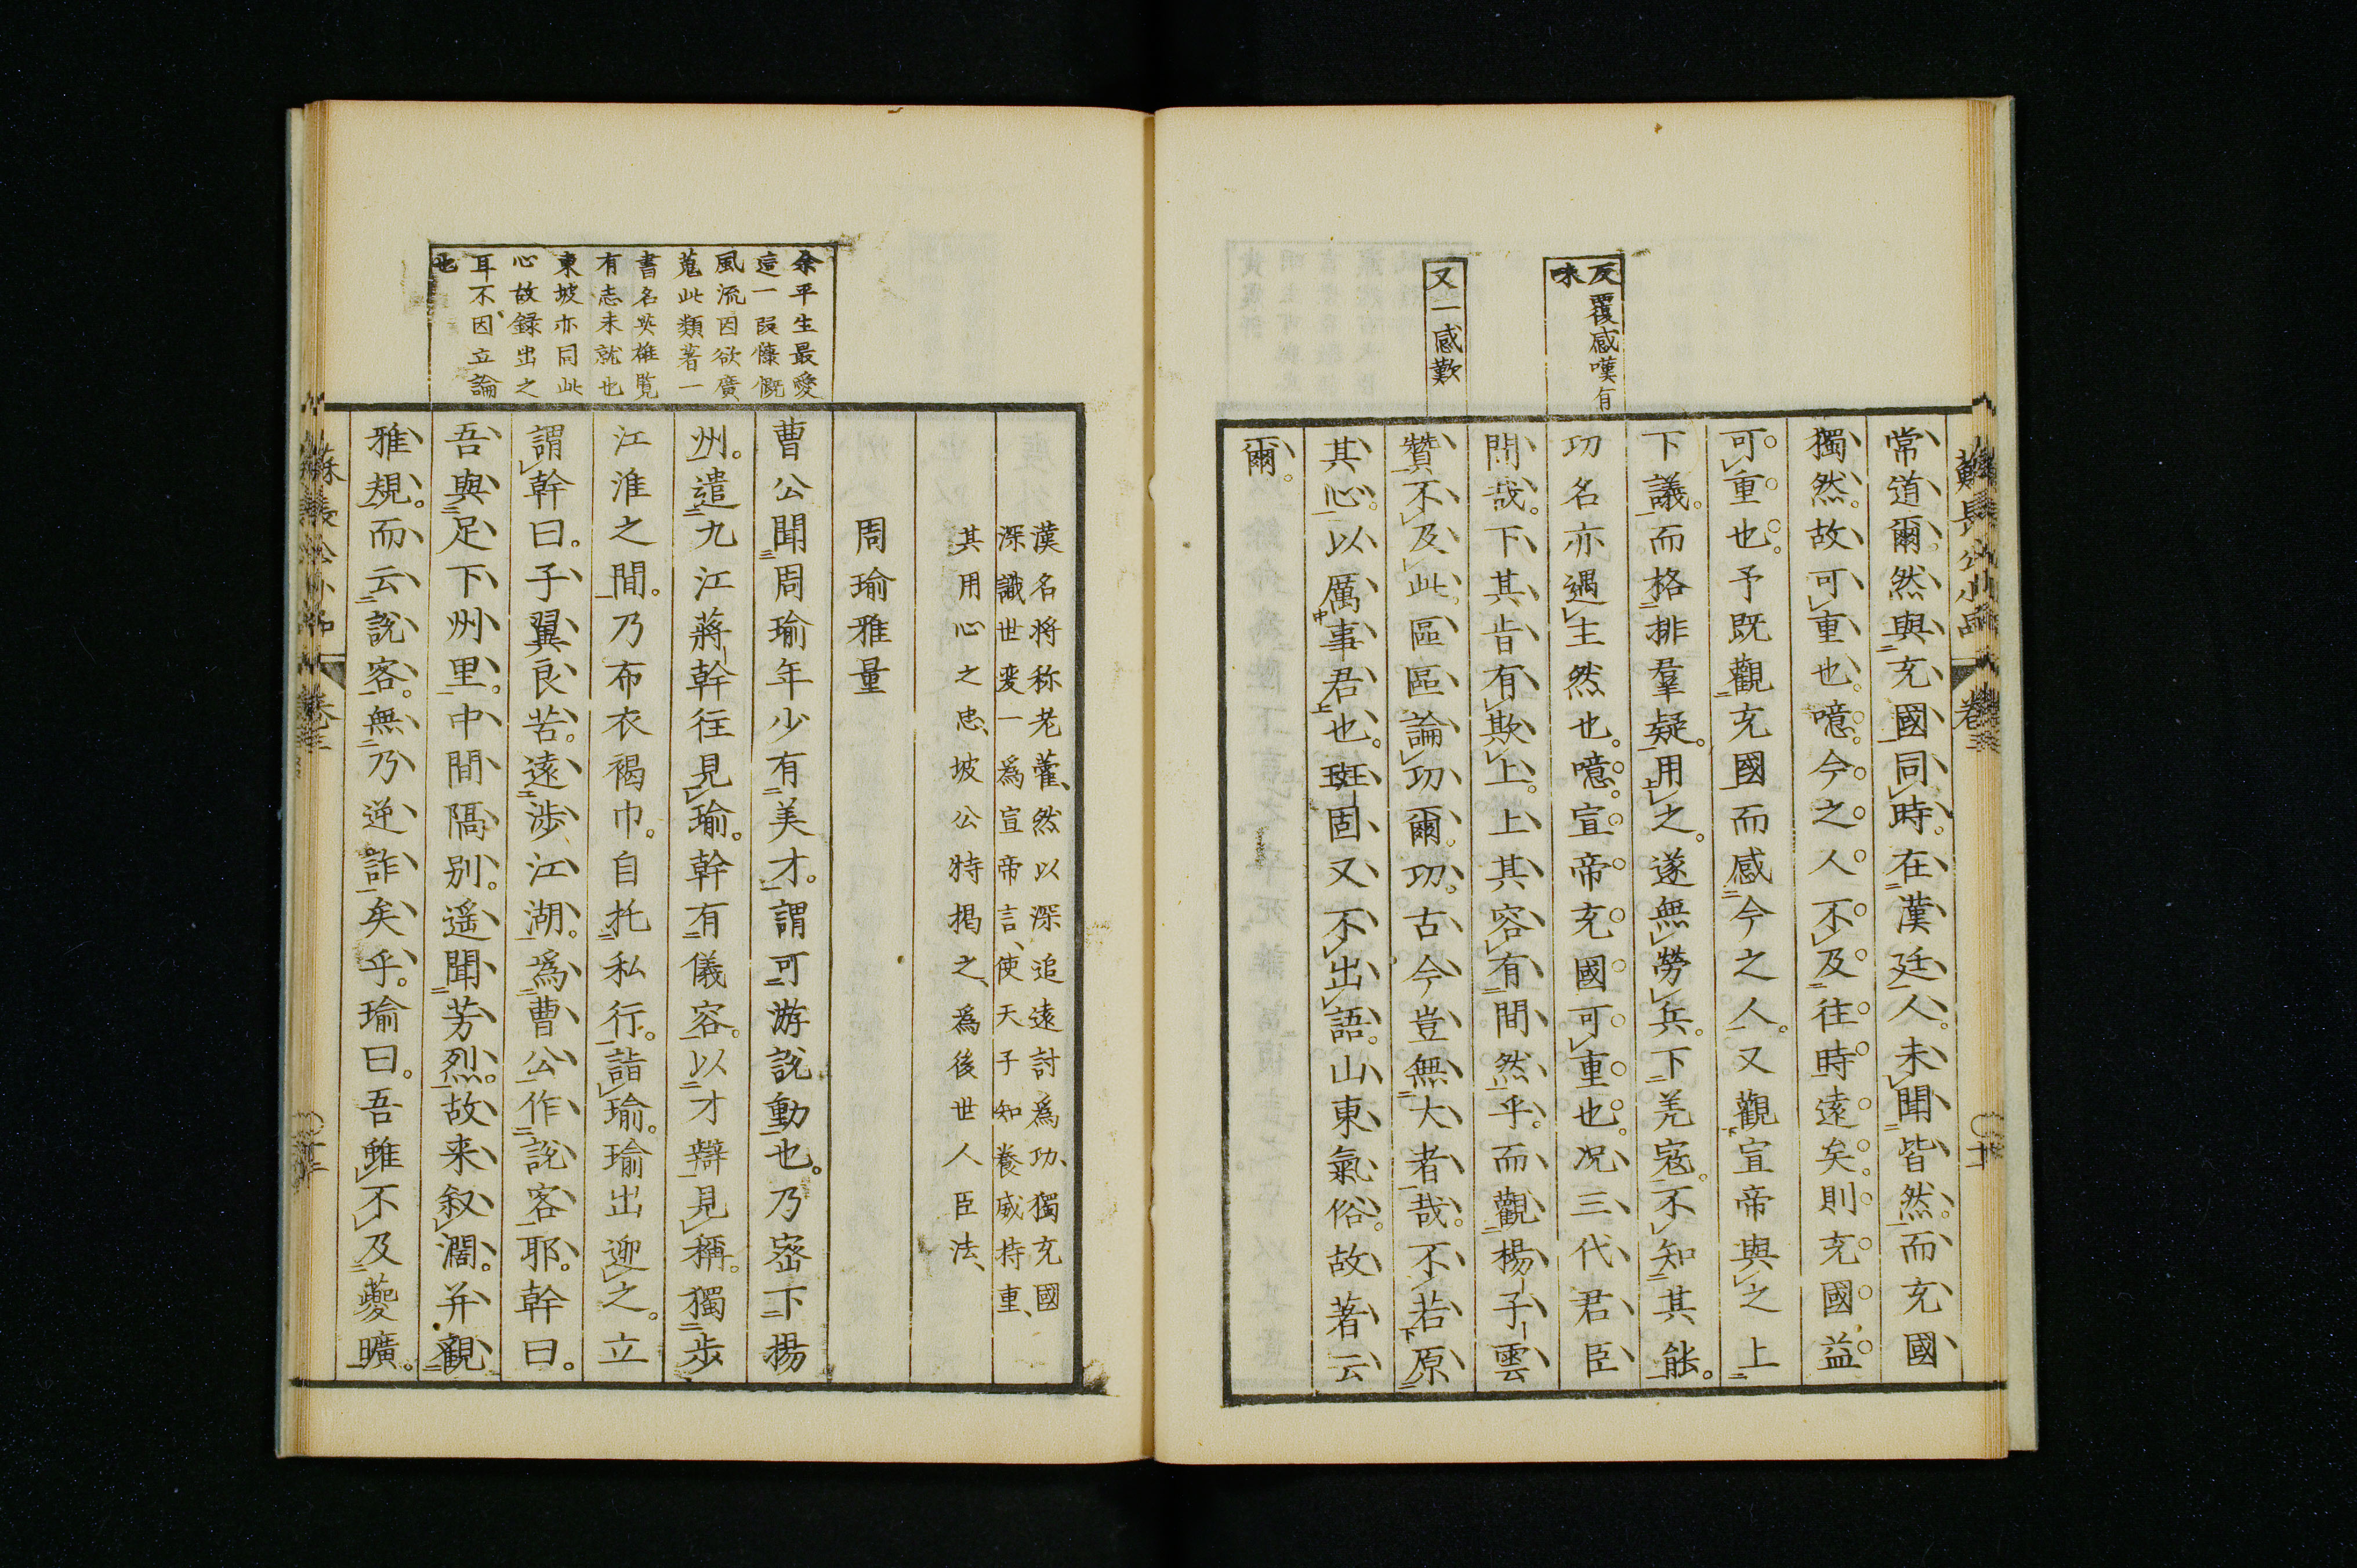 反覆感嘆有
味
又一感歎
常道爾。然與充國同時。在漢廷人。未聞皆然。而充國
獨然。故可重也。噫。今之人不及往時遠矣。則充國益
可重也。予既觀充國而感今之人。又觀宣帝與之上
下議。而格排羣疑。用之。遂無勞兵。下羌寇。不知其能。
功名亦遇主然也。噫。宣帝充國可重也。况三代君臣
間哉。下其旹有欺上。上其容有間然乎。而觀楊子雲
贊不及此。區區論功爾。功。古今豈無大者哉。不若原
其心。以厲事君也。班固又不出語。山東氣俗。故著云
爾。
余平生最愛
這一段慷慨
風流因欲廣
蒐此類著一
書名英雄覧
有志未就也
東坡亦同此
心故録出之
耳不因立論
也
漢名将称老、然以深追遠討爲功、獨充國
深識世変一爲宣帝言、使天子知養威持重、
其用心之忠、坡公特揭之、爲後世人臣法、
周瑜雅量
曹公聞周瑜年少有美才。謂可游說動也。乃密下揚
州。遣九江蔣幹往見瑜。幹有儀容。以才辯見稱。獨步
江淮之間。乃布衣褐巾。自托私行。詣瑜。瑜出迎之。立
謂幹曰。子翼良苦。遠涉江湖。爲曹公作說客耶。幹曰。
吾與足下州里。中間隔别。遥聞芳烈。故来叙濶。并觀
雅規。而云說客。無乃逆詐矣乎。瑜曰。吾雖不及夔曠。
蘇長公小品
卷